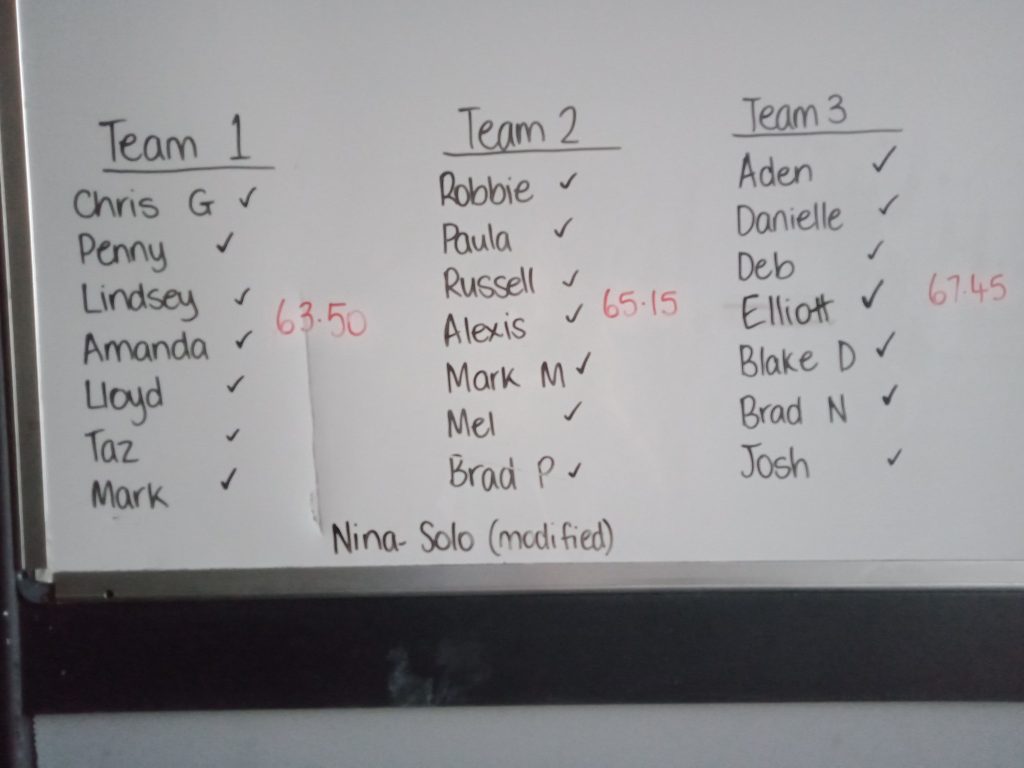 Team 1
Chris G ✓
Penny ✓
Lindsey ✓
Amanda ✓
63.50
Lloyd ✓
Taz ✓
Mark ✓
Team 2
Robbie ✓
Paula ✓
Russell ✓
65.15
Alexis ✓
Mark M ✓
Mel ✓
Brad P ✓
Team 3
Aden ✓
Danielle ✓
Deb ✓
67.45
Elliott ✓
Blake D ✓
Brad N ✓
Josh ✓
Nina- Solo (modified)